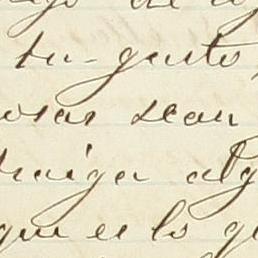 tu gusto,
osas sean
traiga alg
que es lo qu